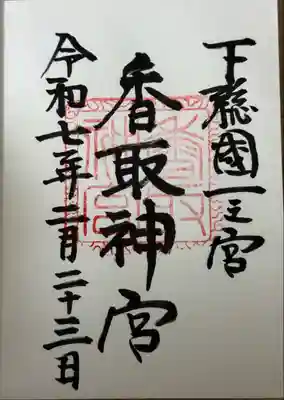 下総國一之宮
香取神宮
令和七年二月二十三日